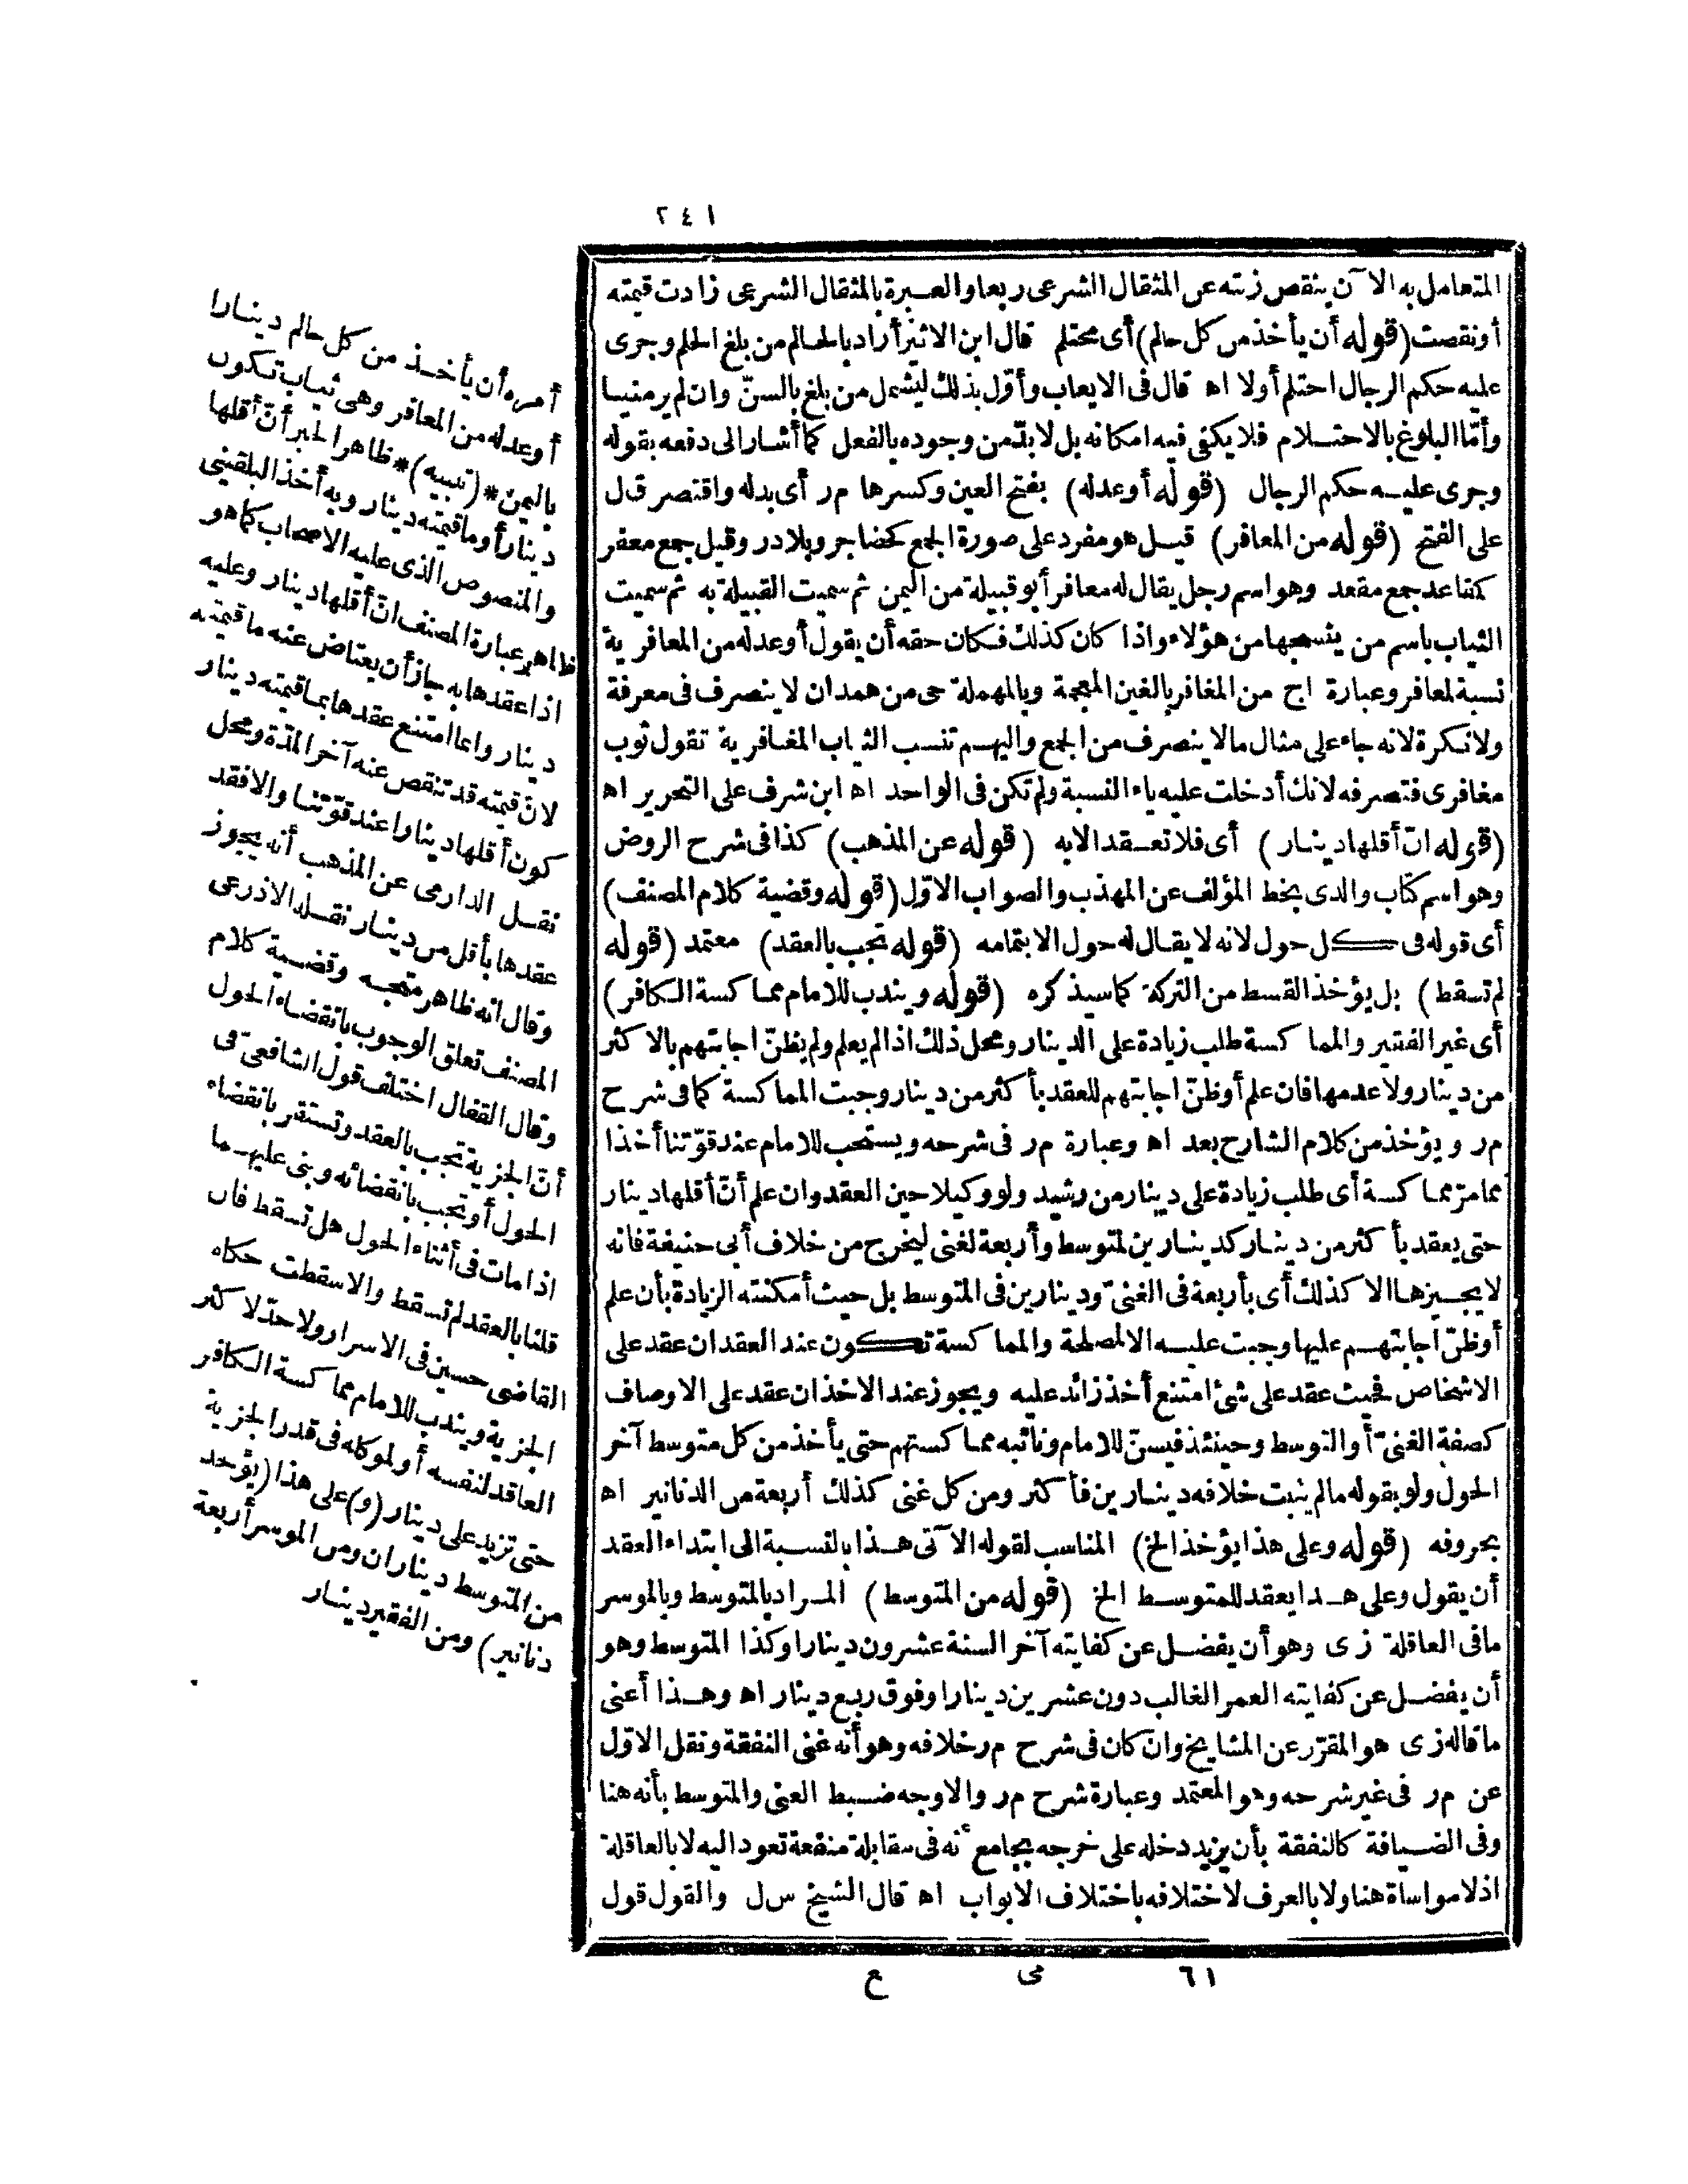 ٢٤١
المتعامل به الآن ينقص زنته عن المثقال الشرعى ربعا والعبرة بالمثقال الشرعى زادت قيمته
أو نقصت (قوله أن يأخذ من كل حالم) أى محتلم قال ابن الاثير أراد بالحالم من بلغ الحلم وجرى
عليه حكم الرجال احتلم أولا اه قال فى الايعاب وأول بذلك ليشمل من بلغ بالسنّ وان لم ير منيا
وأمّا البلوغ بالاحتلام فلا يكفى فيه امكانه بل لا بدّ من وجوده بالفعل كما أشار الى دفعه بقوله
وجرى عليه حكم الرجال (قوله أو عدله) بفتح العين وكسرها م ر أى بدله واقتصر ق ل
على الفتح (قوله من المعافر) قيل هو مفرد على صورة الجمع كحضاجر وبلادر وقيل جمع معفر
كمقاعد جمع مقعد وهو اسم رجل يقال له معافر أبو قبيلة من اليمن ثم سميت القبيلة به ثم سميت
الثياب باسم من ينسجها من هؤلاء واذا كان كذلك فكان حقه أن يقول أو عدله من المعافرية
نسبة لمعافر وعبارة اج من المغافر بالغين المعجمة وبالمهملة حى من همدان لا ينصرف فى معرفة
ولا نكرة لانه جاء على مثال ما لا ينصرف من الجمع واليهم تنسب الثياب المغافرية تقول ثوب
مغافرى فتصرفه لانك أدخلت عليه ياء النسبة ولم تكن فى الواحد اه ابن شرف على التحرير اه
(قوله انّ أقلها دينار) أى فلا تعقد الا به (قوله عن المذهب) كذا فى شرح الروض
وهو اسم كتاب والذى بخط المؤلف عن المهذب والصواب الاوّل (قوله وقضية كلام المصنف)
أى قوله فى كل حول لانه لا يقال له حول الا بتمامه (قوله تجب بالعقد) معتمد (قوله
لم تسقط) بل يؤخذ القسط من التركة كما سيذكره (قوله ويندب للامام مماكسة الكافر)
أى غير الفقير والمماكسة طلب زيادة على الدينار ومحل ذلك اذا لم يعلم ولم يظنّ اجابتهم بالاكثر
من دينار ولا عدمها فان علم أو ظنّ اجابتهم للعقد بأكثر من دينار وجبت المماكسة كما فى شرح
م ر ويؤخذ من كلام الشارح بعد اه وعبارة م ر فى شرحه ويستحب للامام عند قوّتنا أخذا
مما مرّ مماكسة أى طلب زيادة على دينار من رشيد ولو وكيلا حين العقد وان علم أنّ أقلها دينار
حتى يعقد بأكثر من دينار كدينارين لمتوسط وأربعة لغنى ليخرج من خلاف أبى حنيفة فانه
لا يجيزها الا كذلك أى بأربعة فى الغنىّ ودينارين فى المتوسط بل حيث أمكنته الزيادة بأن علم
أو ظنّ اجابتهم عليها وجبت عليه الا لمصلحة والمماكسة تكون عند العقد ان عقد على
الاشخاص فحيث عقد على شئ امتنع أخذ زائد عليه ويجوز عند الاخذ ان عقد على الاوصاف
كصفة الغنىّ أو التوسط وحينئذ فيسنّ للامام ونائبه مماكستهم حتى يأخذ من كل متوسط آخر
الحول ولو بقوله ما لم يثبت خلافه دينارين فأكثر ومن كل غنى كذلك أربعة من الدنانير اه
بحروفه (قوله وعلى هذا يؤخذ الخ) المناسب لقوله الآتى هذا بالنسبة الى ابتداء العقد
أن يقول وعلى هذا يعقد للمتوسط الخ (قوله من المتوسط) المراد بالمتوسط وبالموسر
ما فى العاقلة زى وهو أن يفضل عن كفايته آخر السنة عشرون دينارا وكذا المتوسط وهو
أن يفضل عن كفايته العمر الغالب دون عشرين دينارا وفوق ربع دينار اه وهذا أعنى
ما قاله زى هو المقرّر عن المشايخ وان كان فى شرح م ر خلافه وهو أنه غنى النفقة ونقل الاوّل
عن م ر فى غير شرحه وهو المعتمد وعبارة شرح م ر والاوجه ضبط الغنى والمتوسط بأنه هنا
وفى الضيافة كالنفقة بأن يزيد دخله على خرجه بجامع أنه فى مقابلة منفعة تعود اليه لا بالعاقلة
اذ لا مواساة هنا ولا بالعرف لاختلافه باختلاف الابواب اه قال الشيخ س ل والقول قول
أمره أن يأخذ من كل حالم دينارا
أو عدله من المعافر وهى ثياب تكون
باليمن * (تنبيه) * ظاهر الخبر أنّ أقلها
دينار أو ما قيمته دينار وبه أخذ البلقينى
والمنصوص الذى عليه الاصحاب كما هو
ظاهر عبارة المصنف انّ أقلها دينار وعليه
اذا عقدها به جاز أن يعتاض عنه ما قيمته
دينار وانما امتنع عقدها بما قيمته دينار
لانّ قيمته قد تنقص عنه آخر المدّة ومحل
كون أقلها دينارا عند قوّتنا والا فقد
نقل الدارمى عن المذهب أنه يجوز
عقدها بأقل من دينار نقله الاذرعى
وقال انه ظاهر متجه وقضية كلام
المصنف تعلق الوجوب بانقضاء الحول
وقال القفال اختلف قول الشافعىّ فى
أنّ الجزية تجب بالعقد وتستقر بانقضاء
الحول أو تجب بانقضائه وبنى عليهما
اذا مات فى أثناء الحول هل تسقط فان
قلنا بالعقد لم تسقط والا سقطت حكاه
القاضى حسين فى الاسرار ولا حدّ لاكثر
الجزية ويندب للامام مماكسة الكافر
العاقد لنفسه أو لموكله فى قدر الجزية
حتى تزيد على دينار (و) على هذا (يؤخذ
من المتوسط ديناران ومن الموسر أربعة
دنانير) ومن الفقير دينار
٦١ مى ع